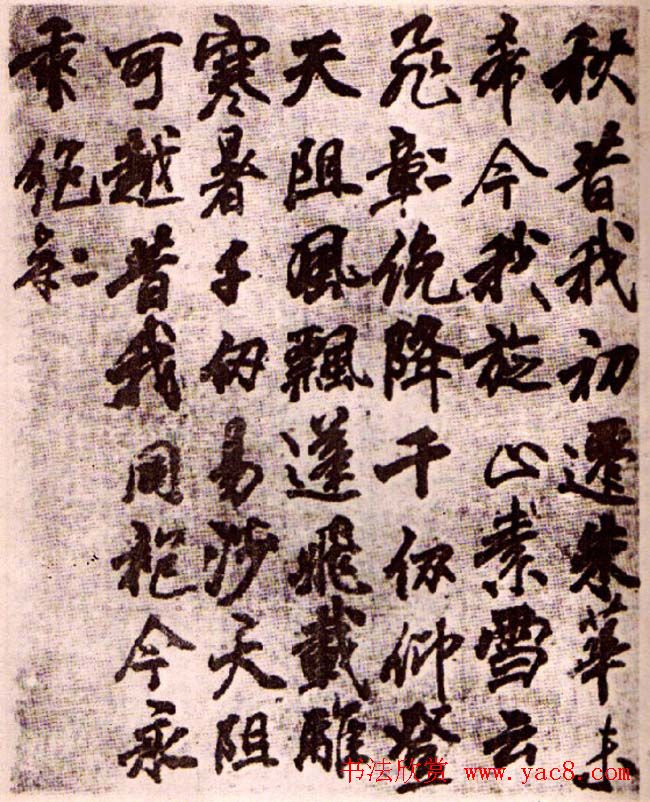 秋昔我初遷朱華未
希今我旋止素雪云
飛章二俛降千仞仰登
天阻風飄蓬飛載離
寒暑千仞易涉天阻
可越昔我同袍今永
乖
书法欣赏 www.yac8.com